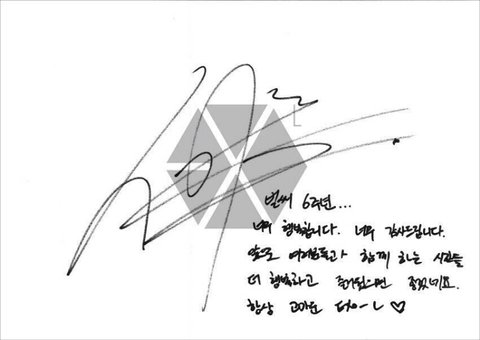 벌써 6주년...
너무 행복합니다. 너무 감사드립니다.
앞으로 여러분들과 함께 하는 시간들
더 행복하고 즐거웠으면 좋겠네요.
항상 고마운 EXO-L ♡